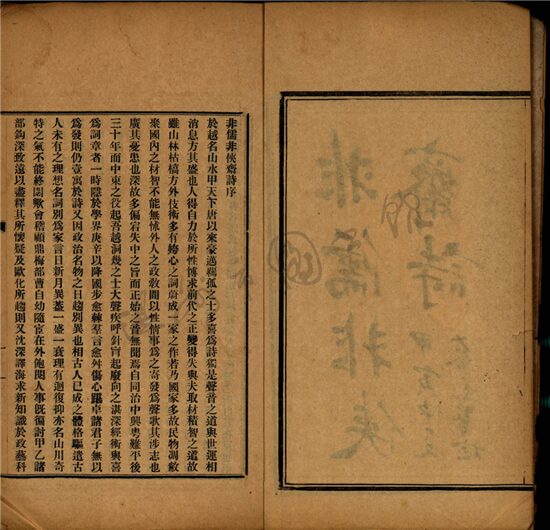 非儒非俠齋詩序
於越名山水甲天下唐以來豪邁羈孤之士多喜爲詩獨是聲音之道與世運相
消息方其盛也人得自力於所性博求前代之正變得失與夫取材積智之道故
雖山林枯槁方外伎術多有綺心之詞蔚成一家之作若乃國家多故民物凋敝
衆國內之材智不能無怵外人之政敎間以性情事爲之寄發爲聲歌其涉志也
廣其憂患也深故多偏宕失中之旨而正始之音無聞焉自同治中興粵難平後
三十年而中東之役起吾越洞幾之士大聲疾呼針肓起廢向之湛深經術與喜
爲詞章者一時隱於學界庚辛以降國步愈棘羣言愈舛傷心蹋卓諸君子無以
爲發則仍壹寓於詩又因政治名物之日趨別異也相古人已成之體格驅遣古
人未有之理想名詞別爲家言日新月異蓋一盛一衰理有迴復抑亦名山川奇
特之氣不能終閟歟會稽顧鼎梅部曹自幼隨宦在外飽閱人事旣徧討甲乙諸
部鉤深致遠以盡釋其所懷疑及歐化所趨則又沈深譯海求新知識於政藝科
非儒非俠
齋詩